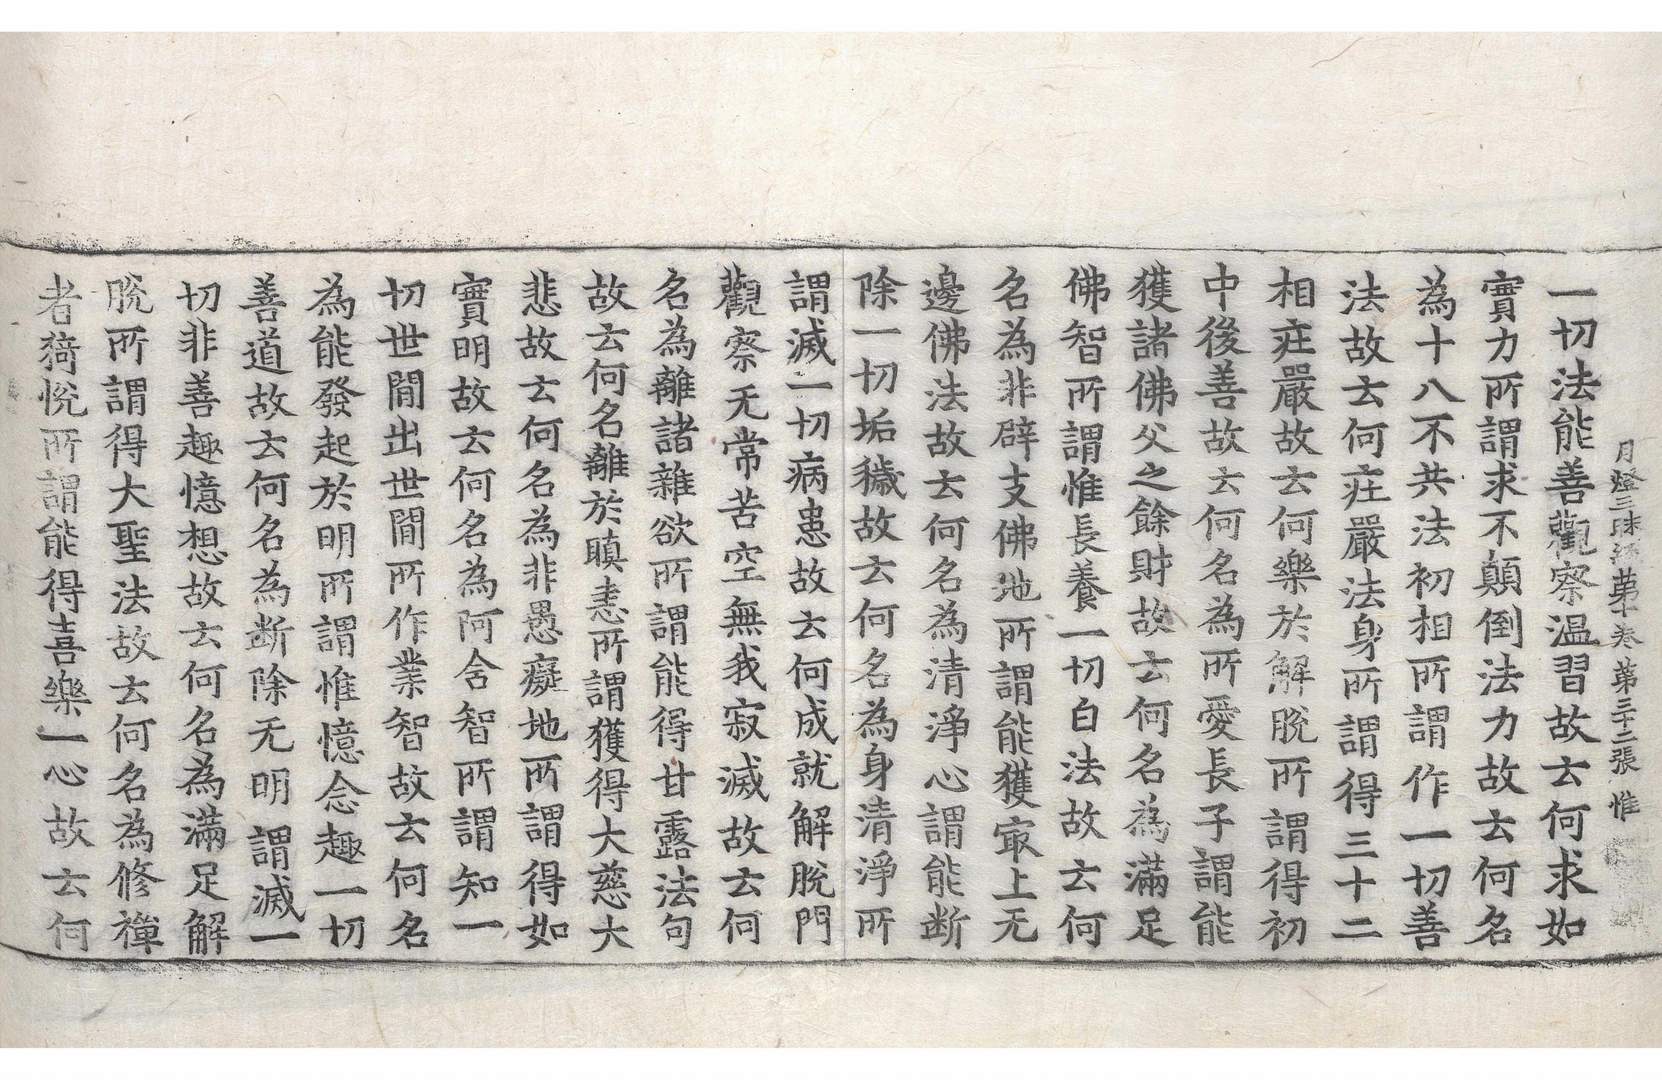 月燈三昧經第十卷 第三十二張 惟
一切法能善觀察溫習故云何求如
實力所謂求不顛倒法力故云何名
為十八不共法初相所謂作一切善
法故云何莊嚴法身所謂得三十二
相莊嚴故云何樂於解脫所謂得初
中後善故云何名為所愛長子謂能
獲諸佛父之餘財故云何名為滿足
佛智所謂惟長養一切白法故云何
名為非辟支佛地所謂能獲㝡上无
邊佛法故云何名為清淨心謂能断
除一切垢穢故云何名為身清淨所
謂滅一切病患故云何成就解脫門
觀察无常苦空無我寂滅故云何
名為離諸雜欲所謂能得甘露法句
故云何名離於瞋恚所謂獲得大慈大
悲故云何名為非愚癡地所謂得如
實明故云何名為阿舍智所謂知一
切世間出世間所作業智故云何名
為能發起於明所謂惟憶念趣一切
善道故云何名為断除无明謂滅一
切非善趣憶想故云何名為滿足解
脫所謂得大聖法故云何名為修禪
者猗悅所謂能得喜樂一心故云何